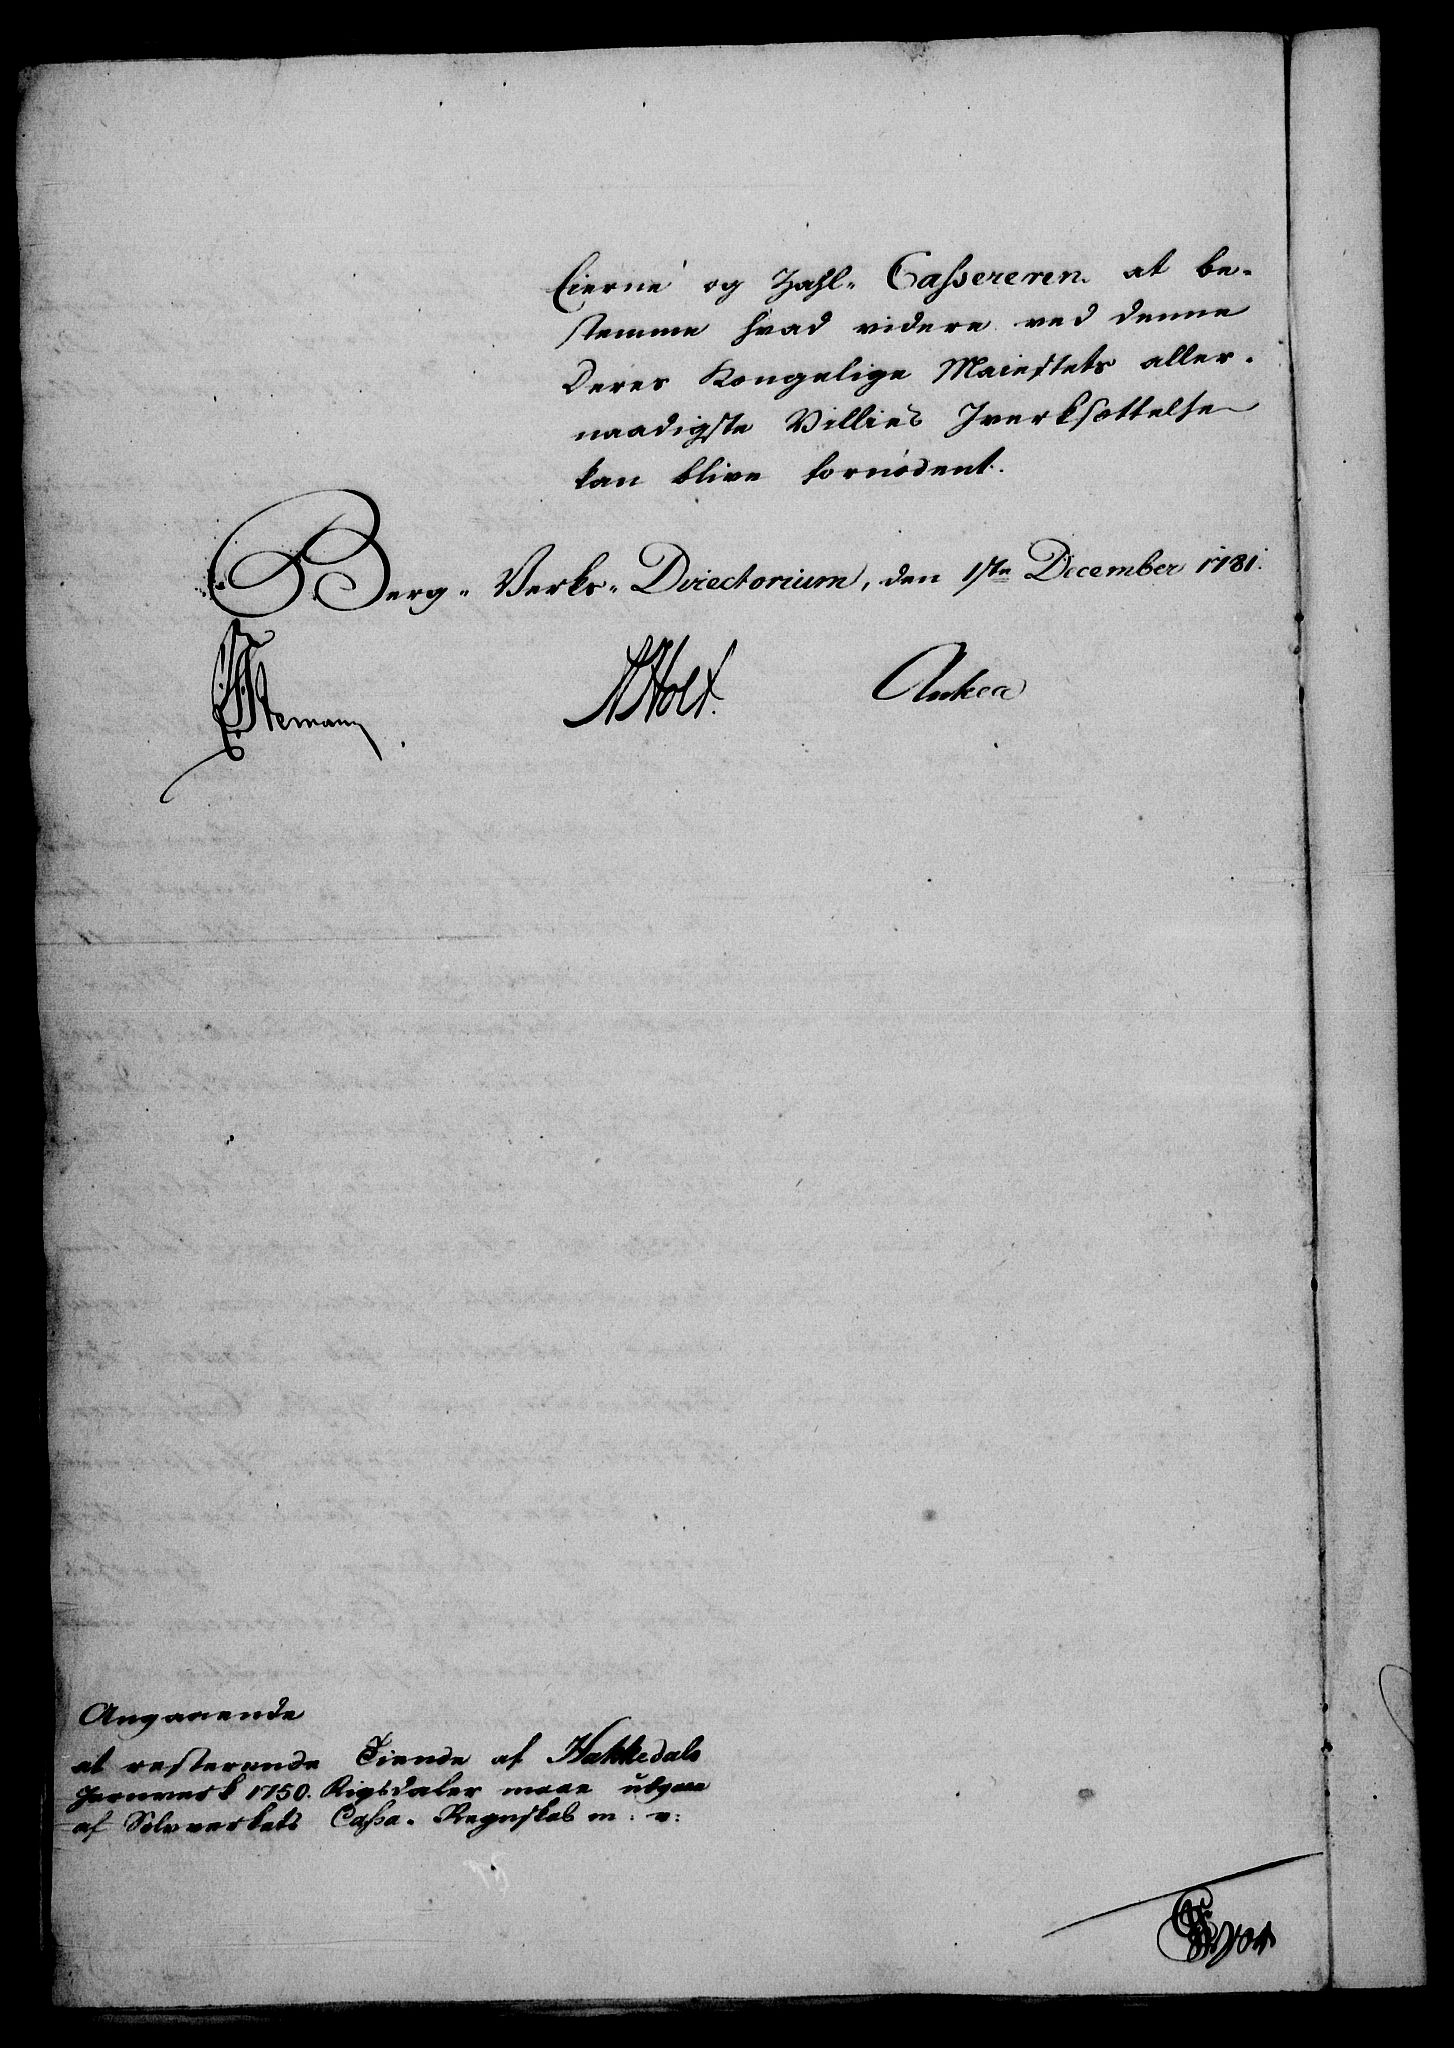 Eierne og Zahl- Cassereren at be-
stemme hvad videre ved denne
Deres Kongelige Maiestets aller-
naadigste Villies Iverksættelse
kan blive fornødent.
Berg- Verks- Directorium, den 1ste December 1781.
Stemann
Holt.
Anker
Angaaende
at resterende Tiende af Hakkedals
Jernverk 1750. Rigsdaler maae udgaae
af Sølvverkets Cassa- Regnskab m: v: